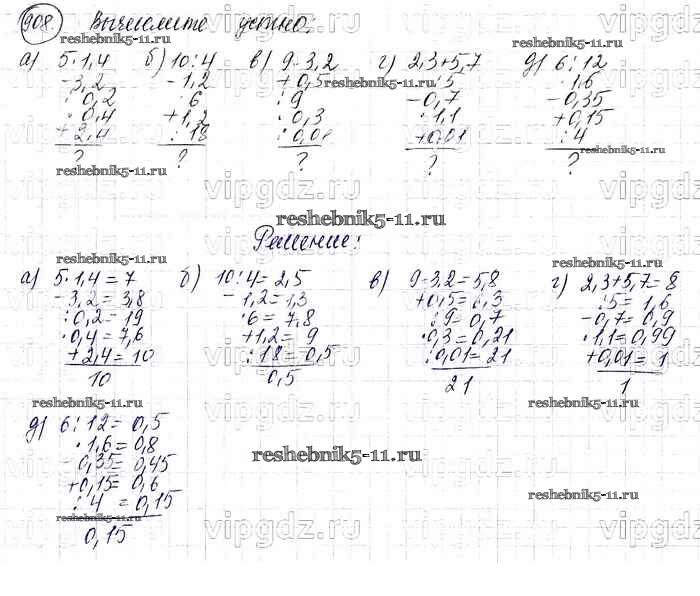 908. Вычислите устно:
а) 5·1,4 б) 10:4 в) 9-3,2 г) 2,3+5,7 д) 6:12
-3,2 -1,2 +0,5 :5 ·1,6
:0,2 ·6 :9 -0,7 -0,35
·0,4 +1,2 ·0,3 ·1,1 +0,15
+2,4 :18 :0,01 +0,01 :4
? ? ? ? ?
reshebnik5-11.ru
Решение:
а) 5·1,4=7 б) 10:4=2,5 в) 9-3,2=5,8 г) 2,3+5,7=8
-3,2=3,8 -1,2=1,3 +0,5=6,3 :5=1,6
:0,2=19 ·6=7,8 :9=0,7 -0,7=0,9
·0,4=7,6 +1,2=9 ·0,3=0,21 ·1,1=0,99
+2,4=10 :18=0,5 :0,01=21 +0,01=1
10 0,5 21 1
д) 6:12=0,5
·1,6=0,8
-0,35=0,45
+0,15=0,6
:4=0,15
0,15
reshebnik5-11.ru
vipgdz.ru